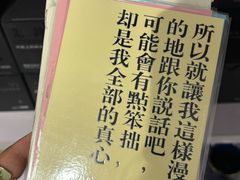 所以就讓我這樣漫
的地跟你說話吧
可能會有點笨拙，
卻是我全部的真心